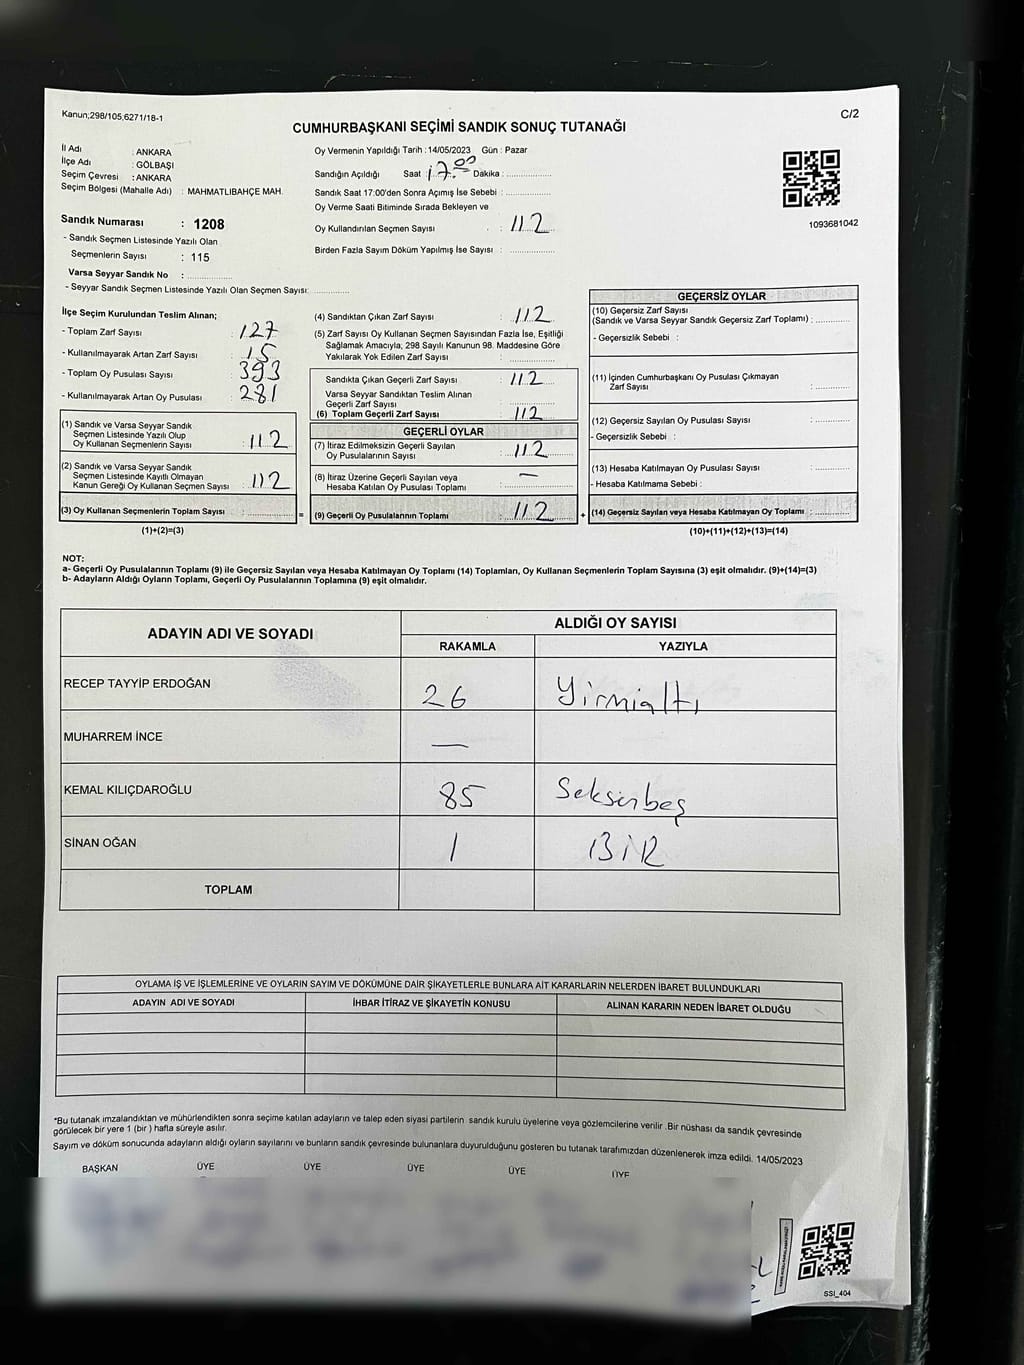 Kanun;298/105,6271/18-1
C/2
CUMHURBAŞKANI SEÇİMİ SANDIK SONUÇ TUTANAĞI
İl Adı : ANKARA
İlçe Adı : GÖLBAŞI
Seçim Çevresi : ANKARA
Seçim Bölgesi (Mahalle Adı) : MAHMATLIBAHÇE MAH.
Sandık Numarası : 1208
- Sandık Seçmen Listesinde Yazılı Olan
Seçmenlerin Sayısı : 115
Varsa Seyyar Sandık No : ..............
- Seyyar Sandık Seçmen Listesinde Yazılı Olan Seçmen Sayısı: ............
Oy Vermenin Yapıldığı Tarih : 14/05/2023 Gün : Pazar
Sandığın Açıldığı Saat : 17.00 Dakika : ..............
Sandık Saat 17:00'den Sonra Açımış İse Sebebi : ..............
Oy Verme Saati Bitiminde Sırada Bekleyen ve
Oy Kullandırılan Seçmen Sayısı : 112
Birden Fazla Sayım Döküm Yapılmış İse Sayısı : ..............
1093681042
İlçe Seçim Kurulundan Teslim Alınan;
- Toplam Zarf Sayısı : 127
- Kullanılmayarak Artan Zarf Sayısı : 15
- Toplam Oy Pusulası Sayısı : 393
- Kullanılmayarak Artan Oy Pusulası : 281
(1) Sandık ve Varsa Seyyar Sandık
Seçmen Listesinde Yazılı Olup
Oy Kullanan Seçmenlerin Sayısı : 112
(2) Sandık ve Varsa Seyyar Sandık
Seçmen Listesinde Kayıtlı Olmayan
Kanun Gereği Oy Kullanan Seçmen Sayısı : 112
(3) Oy Kullanan Seçmenlerin Toplam Sayısı : ..............
(1)+(2)=(3)
(4) Sandıktan Çıkan Zarf Sayısı : 112
(5) Zarf Sayısı Oy Kullanan Seçmen Sayısından Fazla İse, Eşitliği
Sağlamak Amacıyla, 298 Sayılı Kanunun 98. Maddesine Göre
Yakılarak Yok Edilen Zarf Sayısı : ..............
Sandıkta Çıkan Geçerli Zarf Sayısı : 112
Varsa Seyyar Sandıktan Teslim Alınan
Geçerli Zarf Sayısı : ..............
(6) Toplam Geçerli Zarf Sayısı : 112
GEÇERLİ OYLAR
(7) İtiraz Edilmeksizin Geçerli Sayılan
Oy Pusulalarının Sayısı : 112
(8) İtiraz Üzerine Geçerli Sayılan veya
Hesaba Katılan Oy Pusulası Toplamı : —
= (9) Geçerli Oy Pusulalarının Toplamı : 112 +
GEÇERSİZ OYLAR
(10) Geçersiz Zarf Sayısı
(Sandık ve Varsa Seyyar Sandık Geçersiz Zarf Toplamı) : ............
- Geçersizlik Sebebi :
(11) İçinden Cumhurbaşkanı Oy Pusulası Çıkmayan
Zarf Sayısı : ............
(12) Geçersiz Sayılan Oy Pusulası Sayısı : ............
- Geçersizlik Sebebi :
(13) Hesaba Katılmayan Oy Pusulası Sayısı : ............
- Hesaba Katılmama Sebebi :
(14) Geçersiz Sayılan veya Hesaba Katılmayan Oy Toplamı : ............
(10)+(11)+(12)+(13)=(14)
NOT:
a- Geçerli Oy Pusulalarının Toplamı (9) ile Geçersiz Sayılan veya Hesaba Katılmayan Oy Toplamı (14) Toplamları, Oy Kullanan Seçmenlerin Toplam Sayısına (3) eşit olmalıdır. (9)+(14)=(3)
b- Adayların Aldığı Oyların Toplamı, Geçerli Oy Pusulalarının Toplamına (9) eşit olmalıdır.
ADAYIN ADI VE SOYADI
ALDIĞI OY SAYISI
RAKAMLA YAZIYLA
RECEP TAYYİP ERDOĞAN 26 Yirmialtı
MUHARREM İNCE —
KEMAL KILIÇDAROĞLU 85 Seksenbeş
SİNAN OĞAN 1 BİR
TOPLAM
OYLAMA İŞ VE İŞLEMLERİNE VE OYLARIN SAYIM VE DÖKÜMÜNE DAİR ŞİKAYETLERLE BUNLARA AİT KARARLARIN NELERDEN İBARET BULUNDUKLARI
ADAYIN ADI VE SOYADI İHBAR İTİRAZ VE ŞİKAYETİN KONUSU ALINAN KARARIN NEDEN İBARET OLDUĞU
*Bu tutanak imzalandıktan ve mühürlendikten sonra seçime katılan adayların ve talep eden siyasi partilerin sandık kurulu üyelerine veya gözlemcilerine verilir .Bir nüshası da sandık çevresinde
görülecek bir yere 1 (bir ) hafta süreyle asılır.
Sayım ve döküm sonucunda adayların aldığı oyların sayılarını ve bunların sandık çevresinde bulunanlara duyurulduğunu gösteren bu tutanak tarafımızdan düzenlenerek imza edildi. 14/05/2023
BAŞKAN ÜYE ÜYE ÜYE ÜYE ÜYE
SSI_404